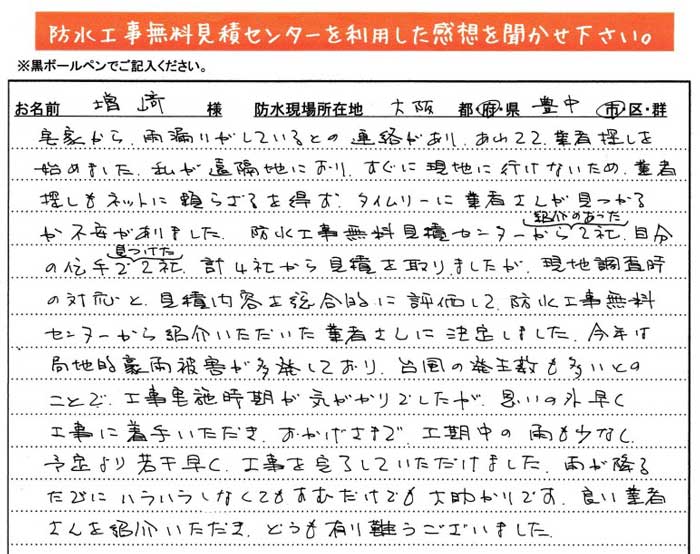 防水工事無料見積センターを利用した感想を聞かせ下さい。
※黒ボールペンでご記入ください。
お名前 増﨑 様 防水現場所在地 大阪 都・府・県 豊中 市・区・群
実家から、雨漏りがしているとの連絡があり、あわてて、業者探しを
始めました。私が遠隔地におり、すぐに現地に行けないため、業者
探しもネットに頼らざるを得ず、タイムリーに業者さんが見つかる
か不安がありました。防水工事無料見積センターから紹介のあった2社、自分
の伝手で見つけた2社、計4社から見積を取りましたが、現地調査時
の対応と、見積内容を総合的に評価して、防水工事無料
センターから紹介いただいた業者さんに決定しました。今年は
局地的豪雨被害が多発しており、台風の発生数も多いとの
ことで、工事実施時期が気がかりでしたが、思いの外早く
工事に着手いただき、おかげさまで、工期中の雨も少なく、
予定より若干早く、工事を完了していただけました。雨が降る
たびにハラハラしなくてもすむだけでも大助かりです。良い業者
さんを紹介いただき、どうも有り難うございました。